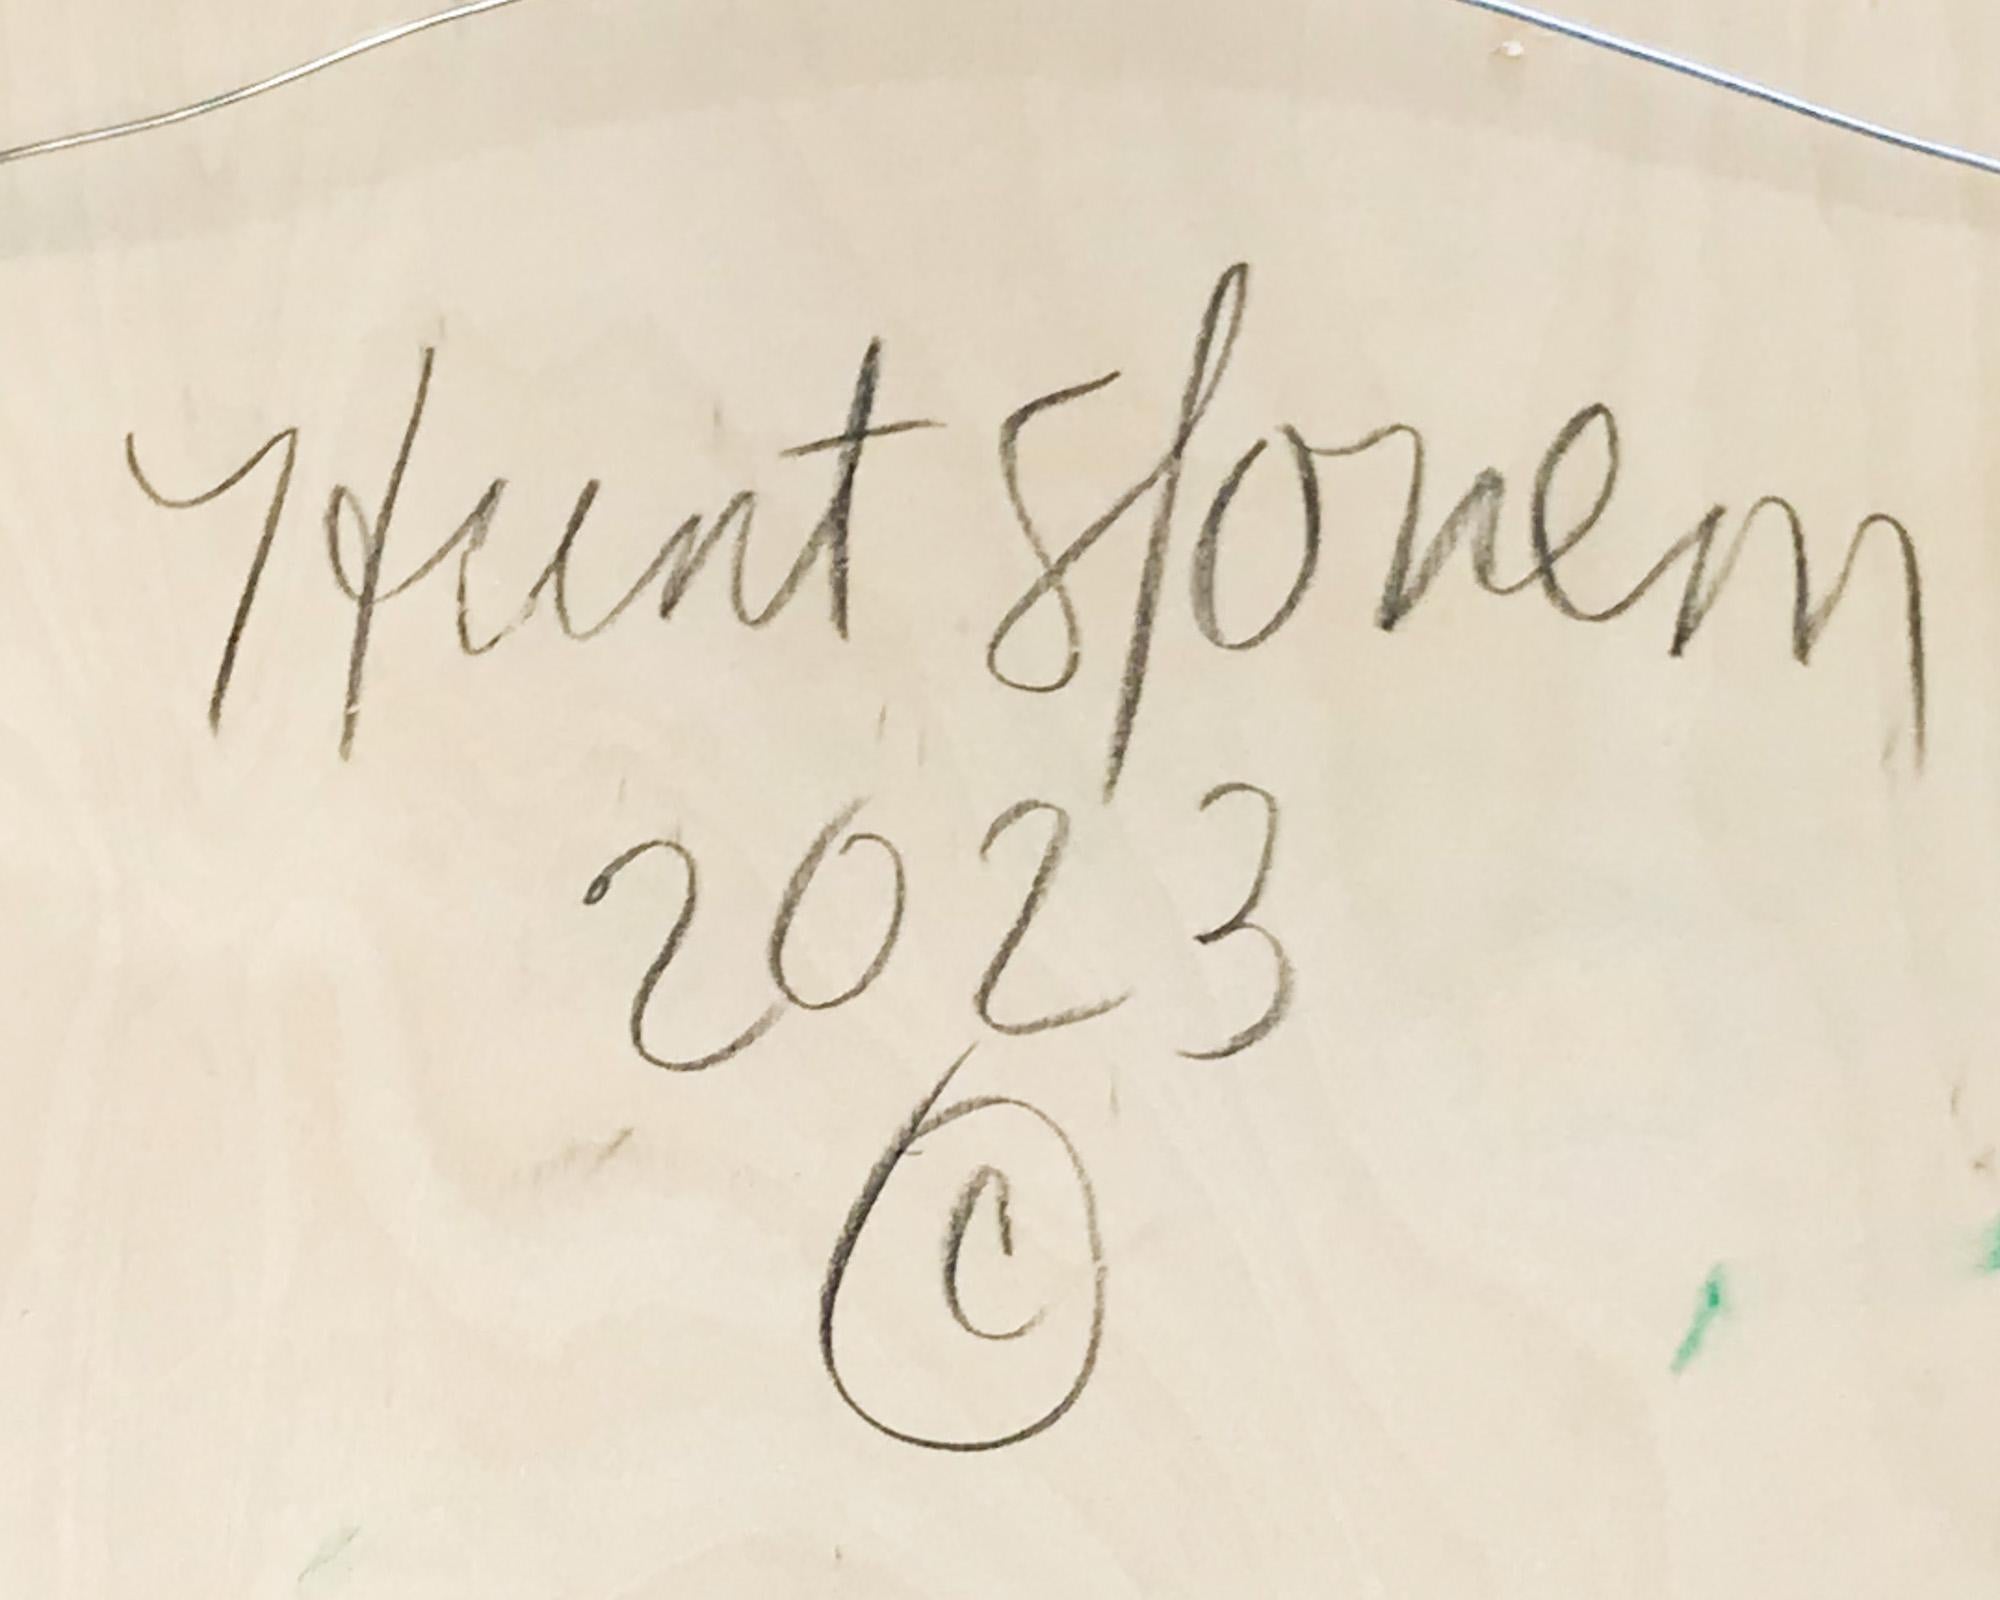 Hunt Slonem
2023
©